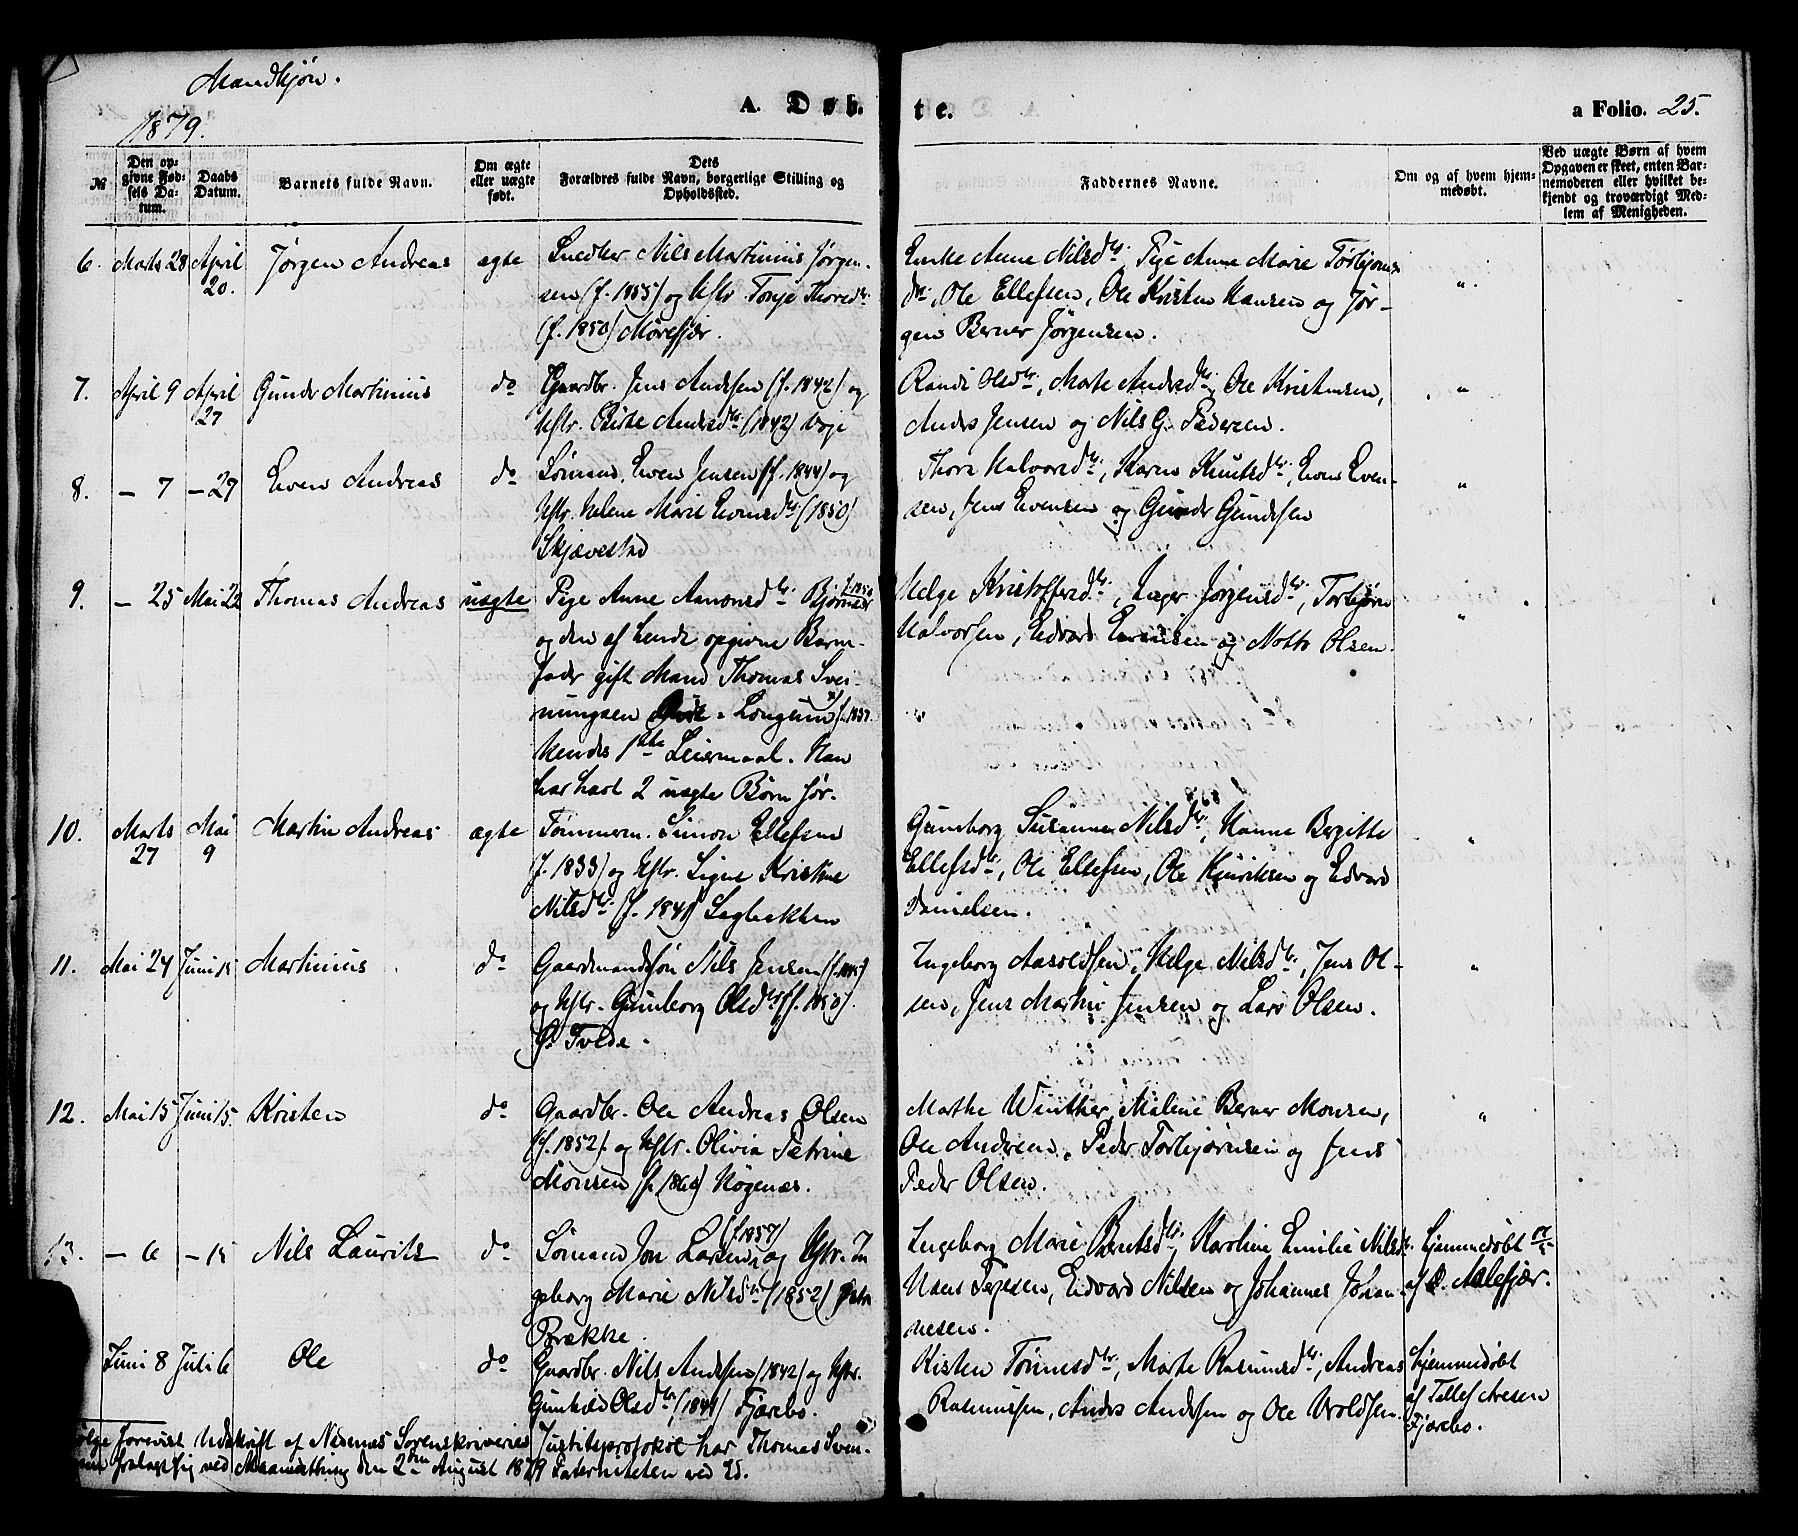 Mandkjøn.
1879.
A. Døb-
te.
a Folio. 25.
№
Den op-
givne Fød-
sels Da-
tum.
Daabs
Datum.
Barnets fulde Navn.
Om ægte
eller uægte
født.
Dets
Forældres fulde Navn, borgerlige Stilling og
Opholdssted.
Faddernes Navne.
Om og af hvem hjem-
medøbt.
Ved uægte Børn af hvem
Opgaven er skeet, enten Bar-
nemoderen eller hvilket be-
kjendt og troværdigt Med-
lem af Menigheden.
6. Marts 28 April 20. Jørgen Andreas ægte
Snedker Nils Martinius Jørgen-
sen (f. 1855) og Hstr. Tonje Thoresdtr.
(f. 1850) Morefjær.
Enke Anne Nilsdtr., Pige Anne Marie Torbjørns
dtr., Ole Ellefsen, Ole Kristen Hansen og Jør-
gen Berner Jørgensen.
"
7. April 9 April 27 Gunder Martinius do
Gaardbr. Jens Andersen (f. 1842) og
Hstr. Andersdtr. (1842) Voje
Randi Olsdtr., Marte Andersdtr., Ole Kristensen,
Anders Jensen og Nils G. Pedersen.
"
8. – 7 – 27 Even Andreas do
Sømand Even Jensen (f. 1844) og
Hstr. Helene Marie Evensdtr. (1850)
Skjævestad
Thore Halvorsdtr., Karen Knutsdtr., Even Even-
sen, Jens Evensen og Gunder Gundersen
"
9. – 25 Mai 22 Thomas Andreas uægte
Pige Anne Aanonsdtr. Bjørnes f. 1850
og den af hende opgivne Barne-
fader gift Mand Thomas Svei-
nungsen Longum x) f. 1837.
Hendes 1ste Leiermaal. Han
har havt 2 uægte Børn før.
Helge Kristoffersdtr., Inger Jørgensdtr., Torbjørn
Halvorsen, Edvard Evensen og Notto Olsen.
"
"
10. Marts 27 Mai 9 Martin Andreas ægte
Tømmerm. Simon Ellefsen
(f. 1833) og Hstr. Signe Kristine
Nilsdtr. (f. 1841) Sagbakken
Gunborg Susanne Nilsdtr., Hanne Birgitte
Ellefsdtr., Ole Ellefsen, Ole Henriksen og Edvard
Danielsen.
"
11. Mai 24 Juni 15 Martinius do
Gaardmandssøn Nils Jensen (f. 1845)
og Hstr. Gunborg Olsdtr. (f. 1850).
Ø. Tvede.
Ingeborg Aasoldsen, Helge Nilsdtr., Jens Ol-
sen, Jens Martin Jensen og Lars Olsen.
"
12. Mai 15 Juni 15. Kristen do
Gaardbr. Ole Andreas Olsen
(f. 1852) og Hstr. Olivia Petrine
Monsen (f. 1860) Høgenæs.
Marthe Winther, Malene Berner Monsen,
Ole Andersen, Peder Torbjørnsen og Jens
Peder Olsen.
"
13. – 6 – 15 Nils Laurits do
Sømand Jon Larsen (f. 1857) og Hstr. In
geborg Marie Nilsdtr. (1852)
Brække.
Ingeborg Marie Berntsdtr., Karoline Emilie Nilsdtr.
Hans Terjesen, Edvard Nilsen og Johannes Johan-
nesen.
hjemmedøbt
af O. Molefjær.
Juni 8 Juli 6 Ole do
Gaardbr. Nils Andersen (1842) og Hstr.
Gunhild Olsdtr. (1841) Fjærebo.
Kisten Tønnesdtr., Marte Rasmusdtr., Andreas
Rasmussen, Anders Andersen og Ole Uvoldsen
hjemmedøbt
af Tellef Aresen
Fjærebo.
ølge forevist Udskrift af Nedenes Sorenskriveries Justitsprotokol har Thomas Svein-
fralagt sig ved Maaneds­thing den 2den August 1879 Paterniteten ved Ed.